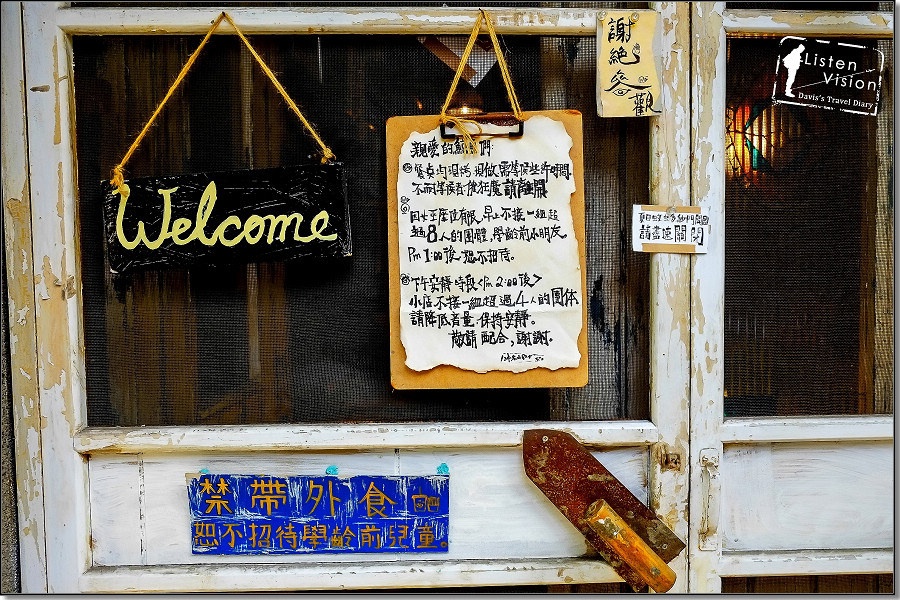 Welcome
親愛的們:
餐桌均現烤現做需等候些許時間
不耐等候者請離開
因小店座位有限,早上不接一組超
過8人的團體,學齡前小朋友,
Pm 1:00後恕不招待。
下午安靜時段<Pm 2:00後>
小店不接一組超過4人的團体
請降低音量,保持安靜。
敬請配合,謝謝。
謝
絕
參
觀
請盡速關閉
禁帶外食
恕不招待學齡前兒童。
Listen
Vision
Davis's Travel Diary